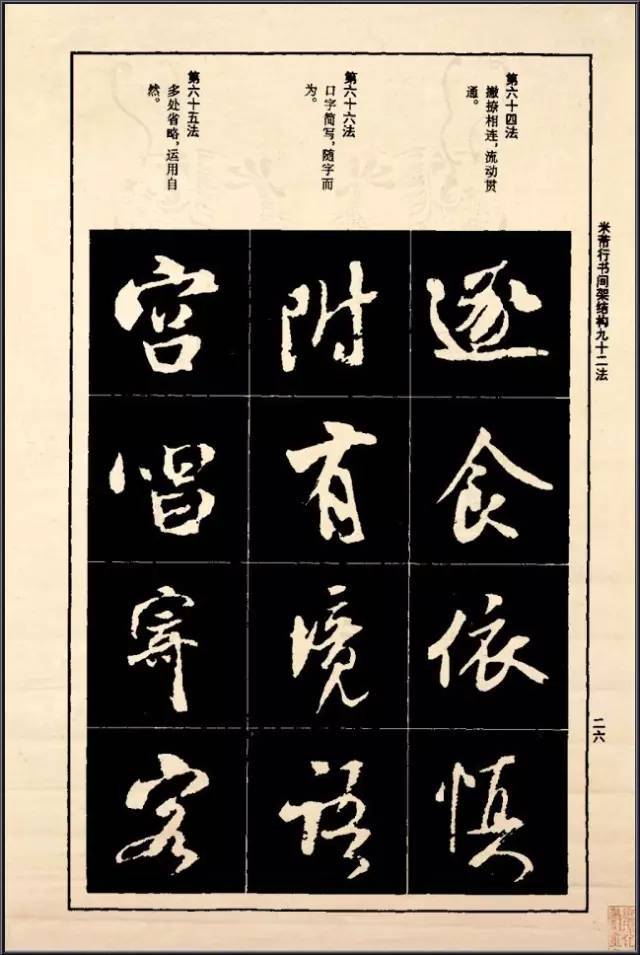 米芾行书间架结构九十二法
二六
第六十四法
撇捺相连，流动贯
通。
逐食依慎
第六十六法
口字简写，随字而
为。
附有境語
第六十五法
多处省略，运用自
然。
宮唱寄客